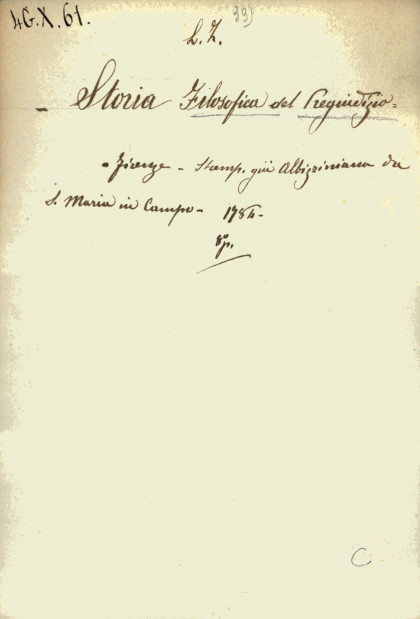 4G.X.61.
39)
L. Z.
- Storia Filosofica del Pregiudizio -
- Firenze - Stamp. già Albizziniana da
S. Maria in Campo - 1784 -
8º p.
C